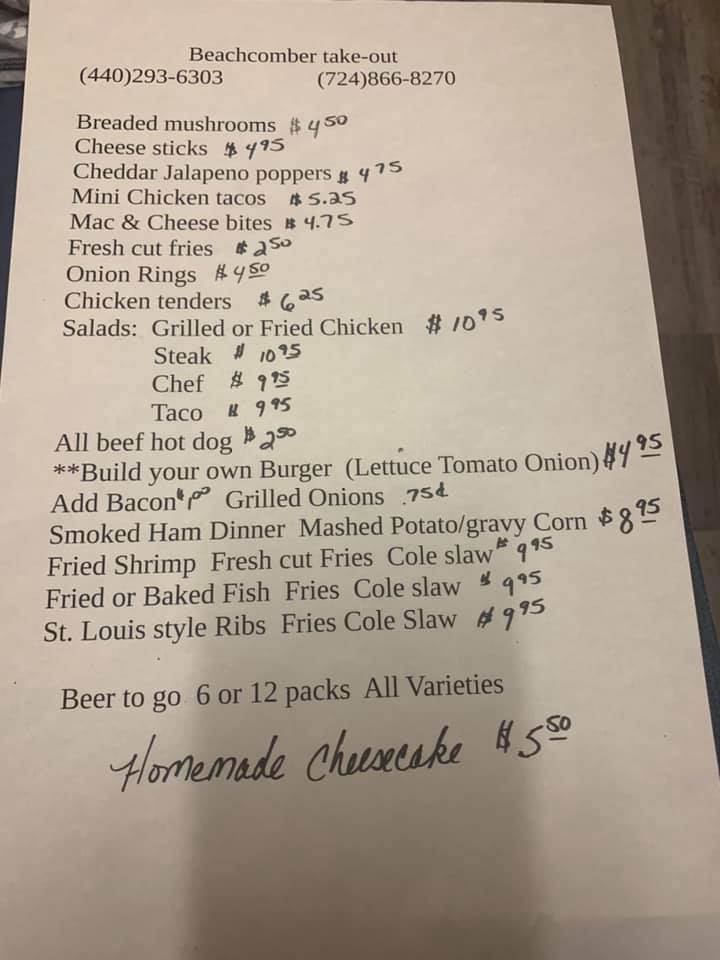 Beachcomber take-out
(440)293-6303 (724)866-8270
Breaded mushrooms $4.50
Cheese sticks $4.95
Cheddar Jalapeno poppers $4.75
Mini Chicken tacos $5.25
Mac & Cheese bites $4.75
Fresh cut fries $2.50
Onion Rings $4.50
Chicken tenders $6.25
Salads: Grilled or Fried Chicken $10.95
Steak $10.95
Chef $9.95
Taco $9.95
All beef hot dog $2.50
**Build your own Burger (Lettuce Tomato Onion) $4.95
Add Bacon $1.00 Grilled Onions .75¢
Smoked Ham Dinner Mashed Potato/gravy Corn $8.95
Fried Shrimp Fresh cut Fries Cole slaw $9.95
Fried or Baked Fish Fries Cole slaw $9.95
St. Louis style Ribs Fries Cole Slaw $9.95
Beer to go 6 or 12 packs All Varieties
Homemade Cheesecake $5.50